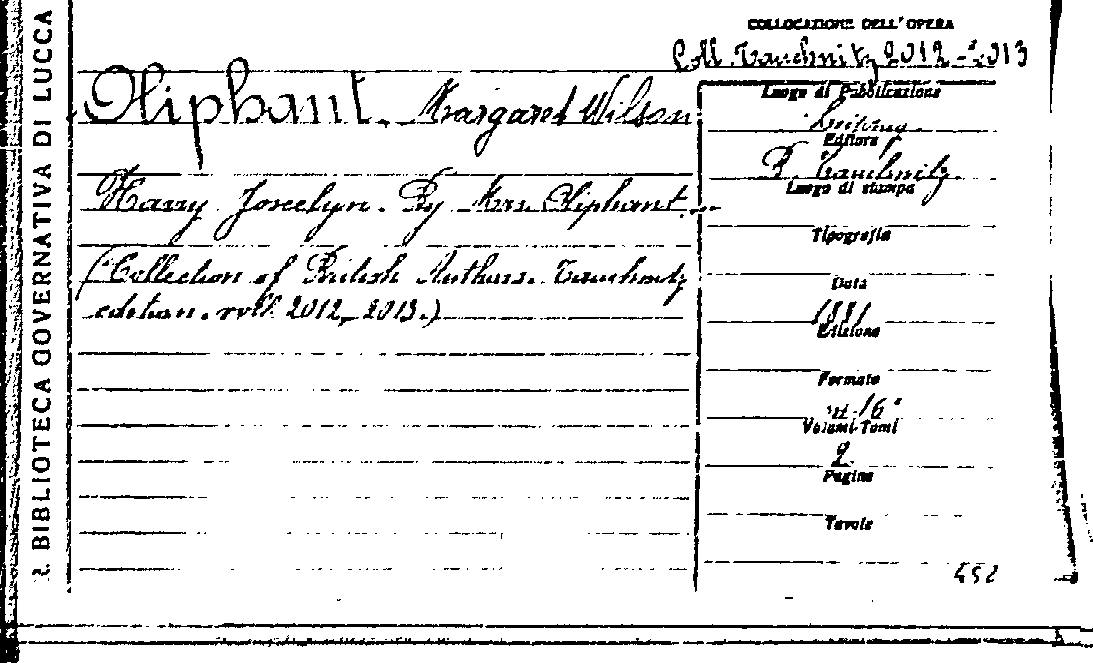 R. BIBLIOTECA GOVERNATIVA DI LUCCA
COLLOCAZIONE DELL'OPERA
Coll. Tauchnitz 2012-2013
Oliphant. Margaret Wilson
Harry Joscelyn. By Mrs. Oliphant.
(Collection of British Authors. Tauchnitz
edition. voll. 2012-2013.)
Luogo di Pubblicazione
Leipzig
Editore
B. Tauchnitz
Luogo di stampa
Tipografia
Data
1881
Edizione
Formato
in 16°
Volumi-Tomi
2
Pagine
Tavole
452